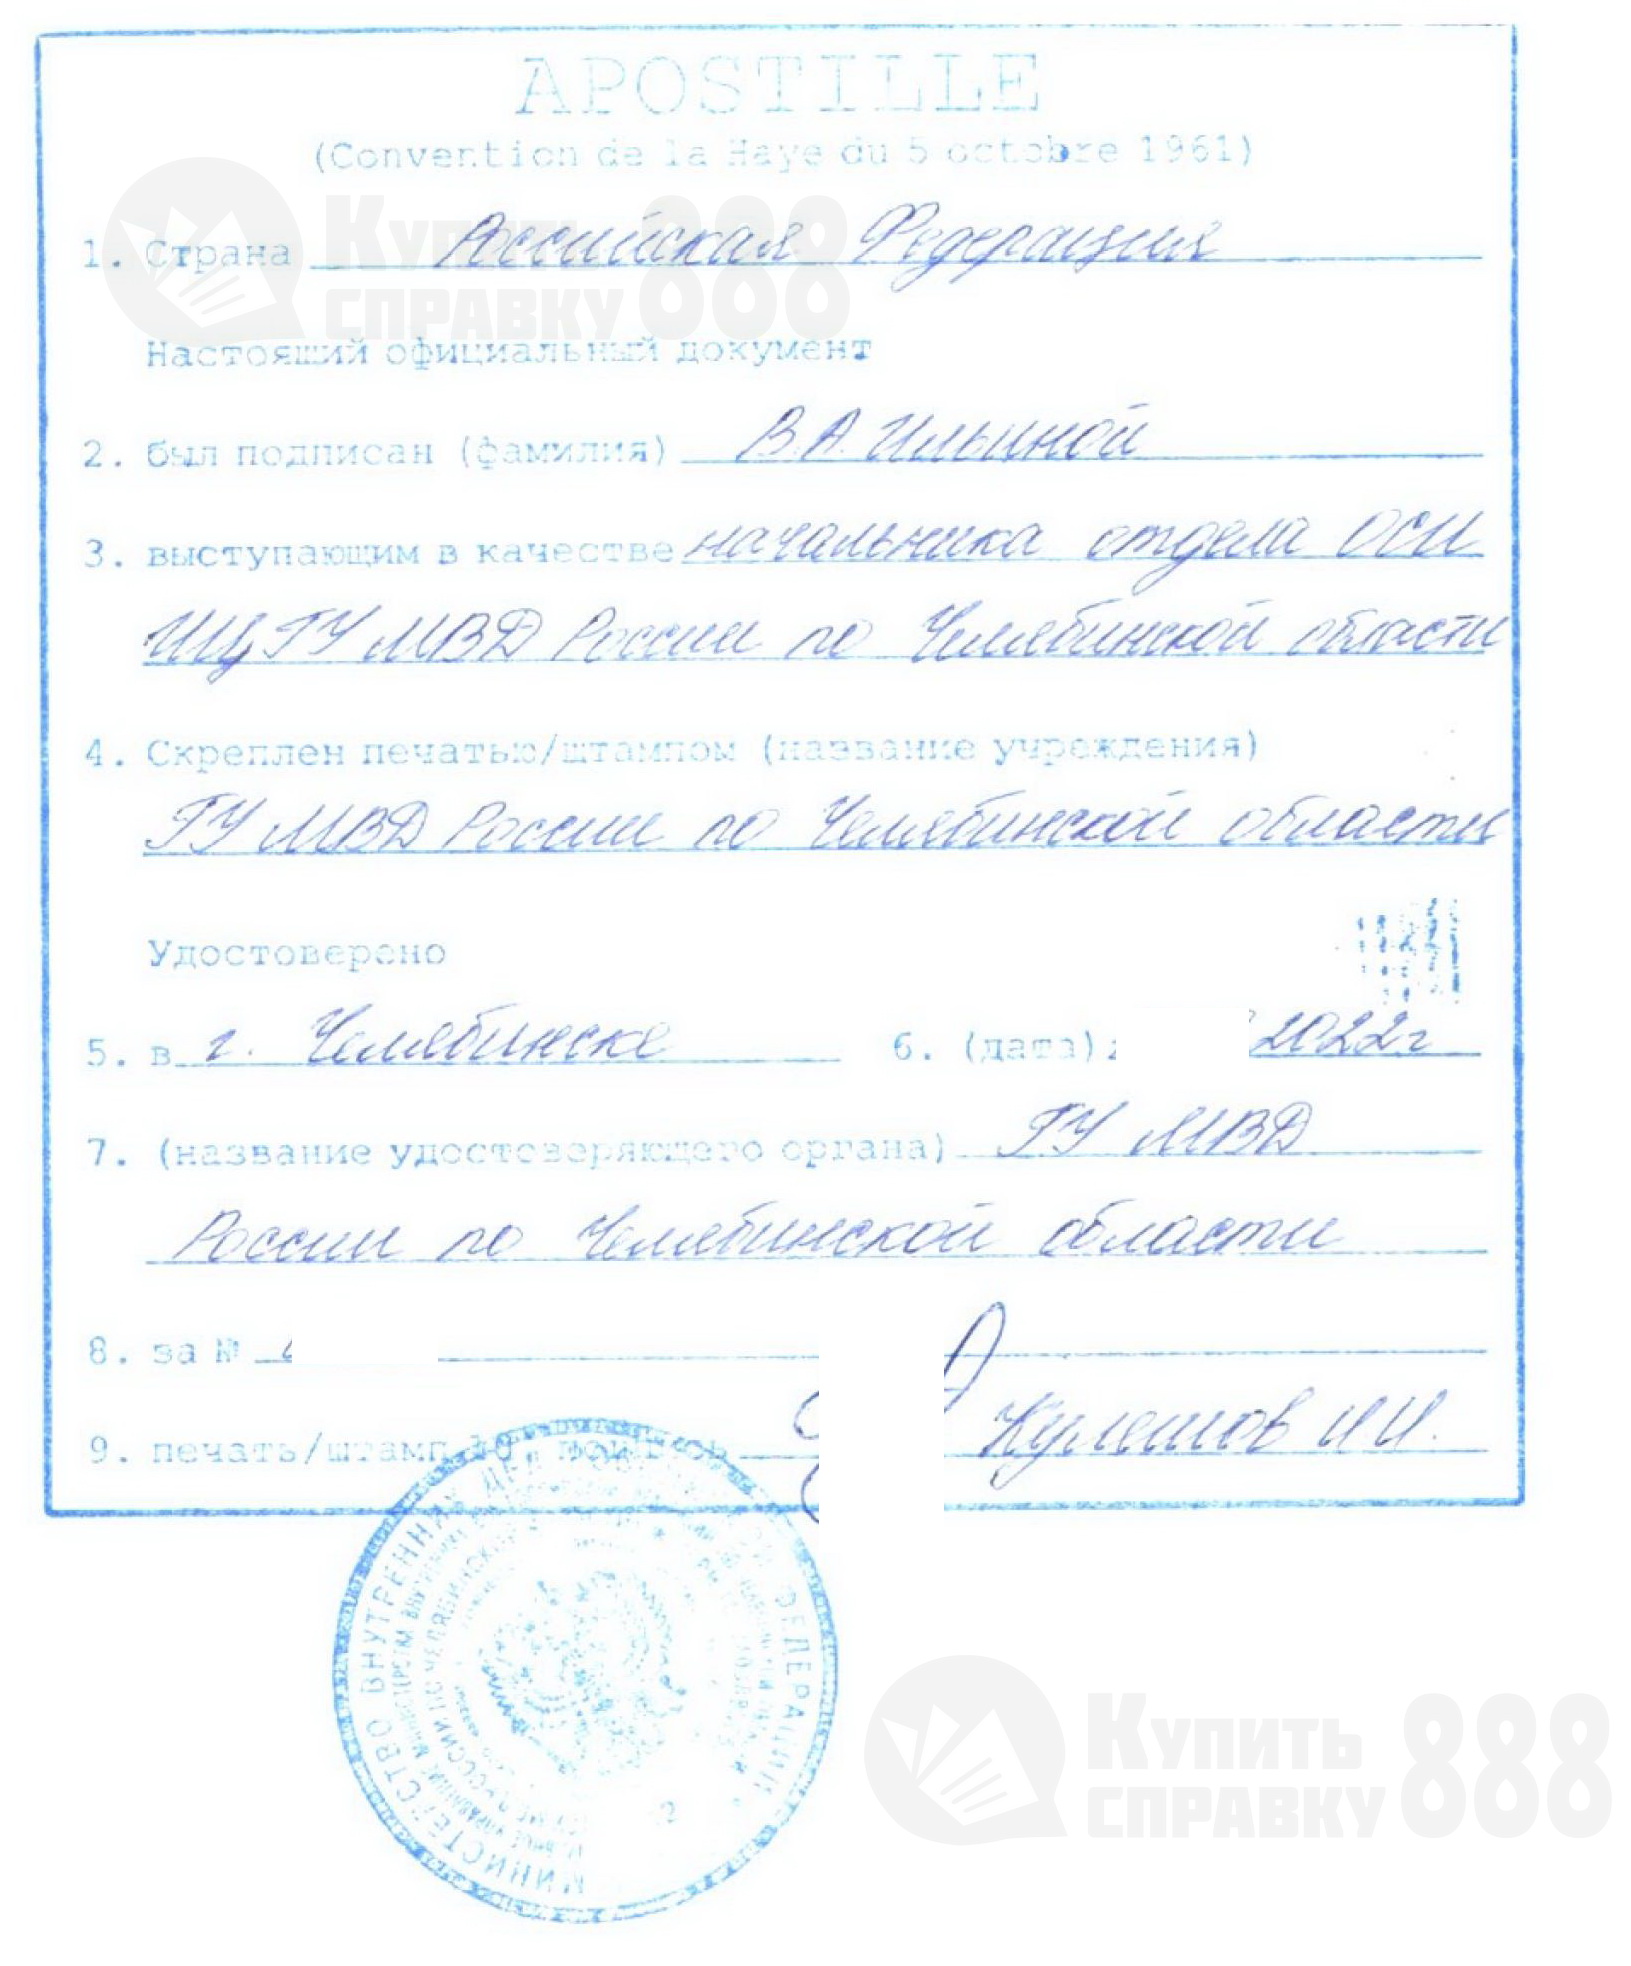 APOSTILLE
(Convention de la Haye du 5 octobre 1961)
1. Страна Российская Федерация
Настоящий официальный документ
2. был подписан (фамилия) В.А. Ильиной
3. выступающим в качестве начальника отдела ОСИ
ИЦ ГУ МВД России по Челябинской области
4. Скреплен печатью/штампом (название учреждения)
ГУ МВД России по Челябинской области
Удостоверено
5. в г. Челябинске 6. (дата) 2022г
7. (название удостоверяющего органа) ГУ МВД
России по Челябинской области
8. за №
9. печать/штамп 10. подпись Кулешов И И.
МИНИСТЕРСТВО ВНУТРЕННИХ ДЕЛ РОССИЙСКОЙ ФЕДЕРАЦИИ
КУПИТЬ СПРАВКУ 888
КУПИТЬ СПРАВКУ 888